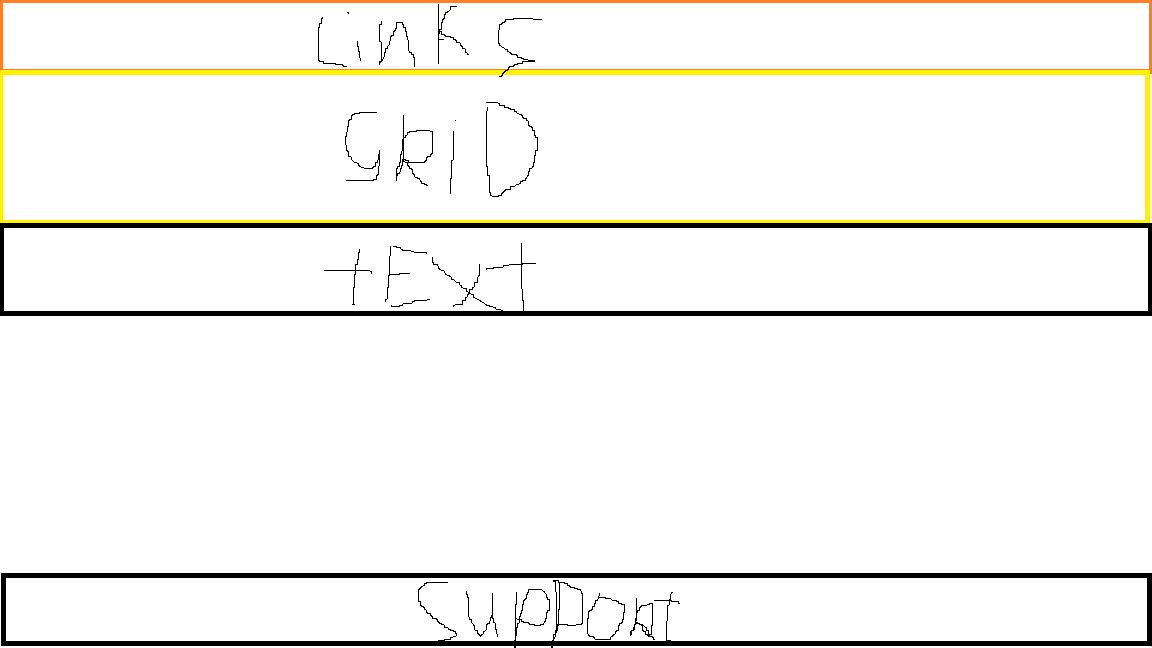 Links
GRID
tEXt
SUPPORT